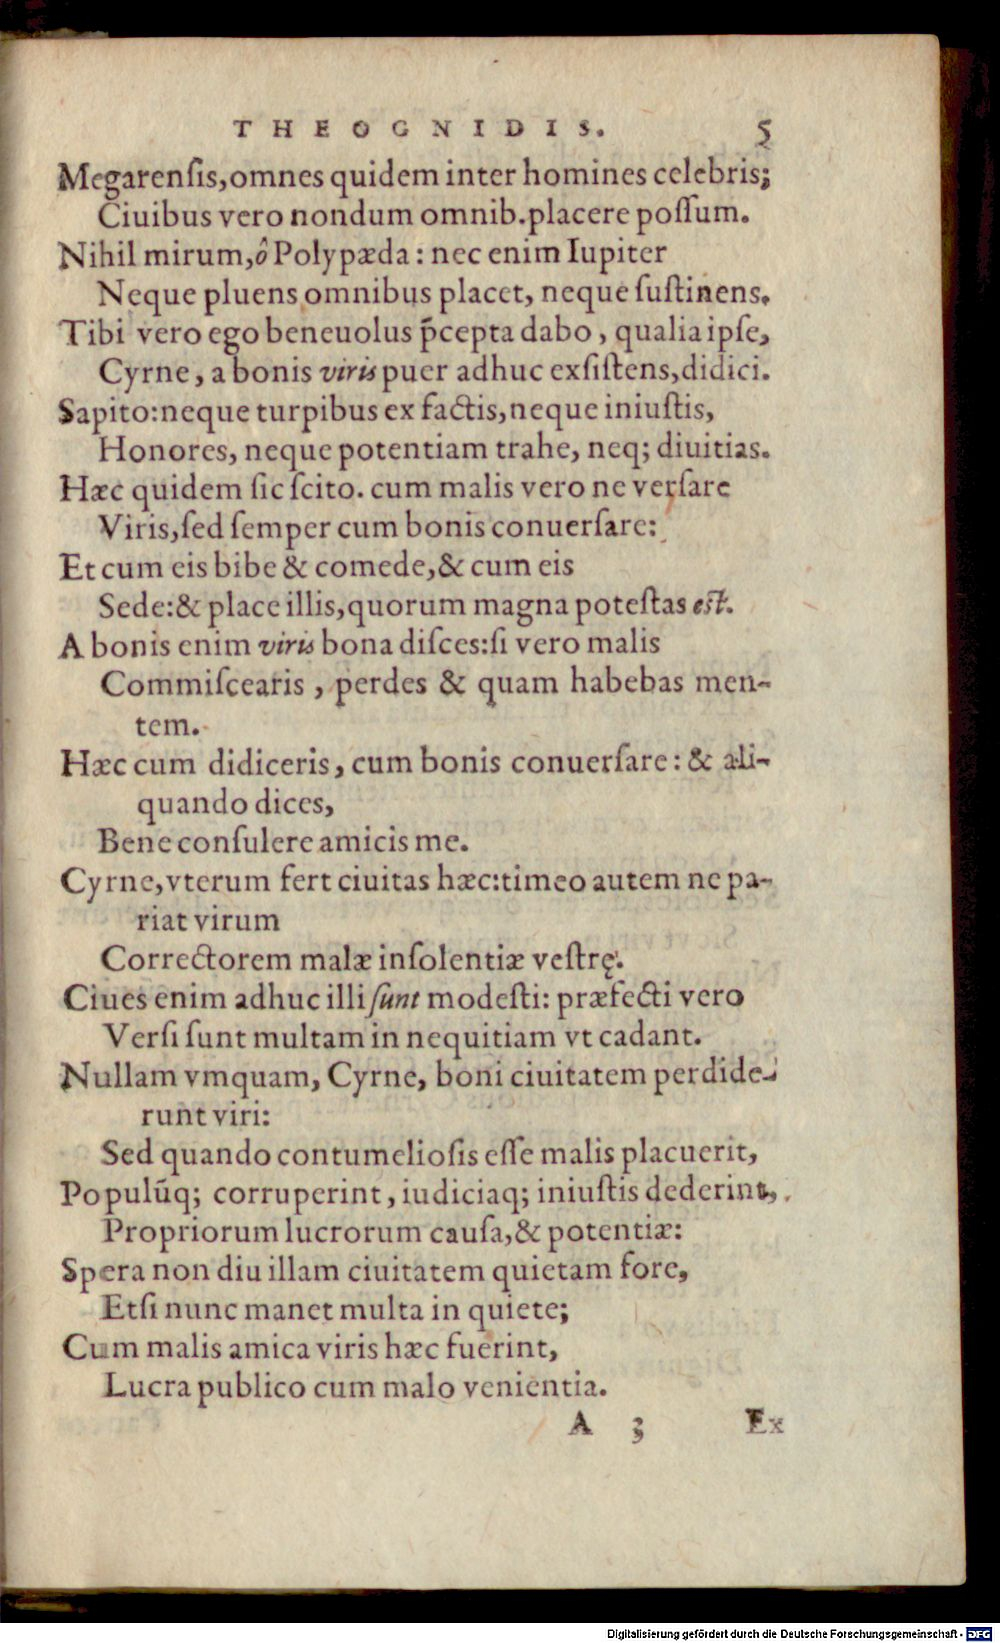 THEOGNIDIS. 5
Megarenſis, omnes quidem inter homines celebris;
Ciuibus vero nondum omnib. placere poſſum.
Nihil mirum, ô Polypæda: nec enim Iupiter
Neque pluens omnibus placet, neque ſuſtinens.
Tibi vero ego beneuolus p̄cepta dabo, qualia ipſe,
Cyrne, a bonis viris puer adhuc exſiſtens, didici.
Sapito: neque turpibus ex factis, neque iniuſtis,
Honores, neque potentiam trahe, neq; diuitias.
Hæc quidem ſic ſcito. cum malis vero ne verſare
Viris, ſed ſemper cum bonis conuerſare:
Et cum eis bibe & comede, & cum eis
Sede: & place illis, quorum magna poteſtas eſt.
A bonis enim viris bona diſces: ſi vero malis
Commiſcearis, perdes & quam habebas men-
tem.
Hæc cum didiceris, cum bonis conuerſare: & ali-
quando dices,
Bene conſulere amicis me.
Cyrne, vterum fert ciuitas hæc: timeo autem ne pa-
riat virum
Correctorem malæ inſolentiæ veſtrę.
Ciues enim adhuc illi ſunt modeſti: præfecti vero
Verſi ſunt multam in nequitiam vt cadant.
Nullam vmquam, Cyrne, boni ciuitatem perdide-
runt viri:
Sed quando contumelioſis eſſe malis placuerit,
Populūq; corruperint, iudiciaq; iniuſtis dederint,
Propriorum lucrorum cauſa, & potentiæ:
Spera non diu illam ciuitatem quietam fore,
Etſi nunc manet multa in quiete;
Cum malis amica viris hæc fuerint,
Lucra publico cum malo venientia.
A 3 Ex
Digitalisierung gefördert durch die Deutsche Forschungsgemeinschaft - DFG